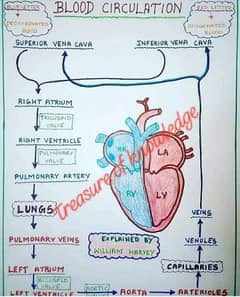 BLOOD CIRCULATION
BLUE LETTER
DEOXYGENATED
BLOOD
RED LETTER
OXYGENATED
BLOOD
SUPERIOR VENA CAVA
INFERIOR VENA CAVA
RIGHT ATRIUM
TRICUSPID
VALVE
RIGHT VENTRICLE
PULMONARY
VALVE
PULMONARY ARTERY
LUNGS
PULMONARY VEINS
LEFT ATRIUM
BICUSPID
VALVE
LEFT VENTRICLE
AORTIC
AORTA
ARTERIOLES
CAPILLARIES
VENULES
VEINS
RA
LA
RV
LV
EXPLAINED BY
WILLIAM HARVEY
treasure of knowledge